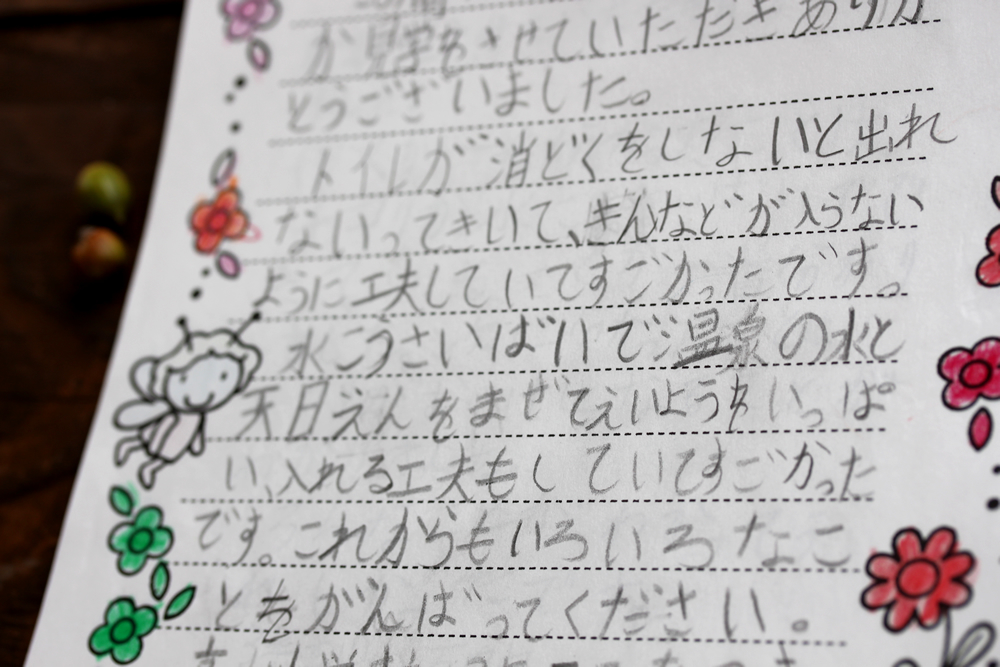 か見学をさせていただきありが
とうございました。
トイレが消どくをしないと出れ
ないってきいて、きんなどが入らない
ように工夫していてすごかったです。
水こうさいばいで温泉の水と
天日えんをまぜてえいようをいっぱ
い、入れる工夫もしていてすごかった
です。これからもいろいろなこ
とをがんばってください。